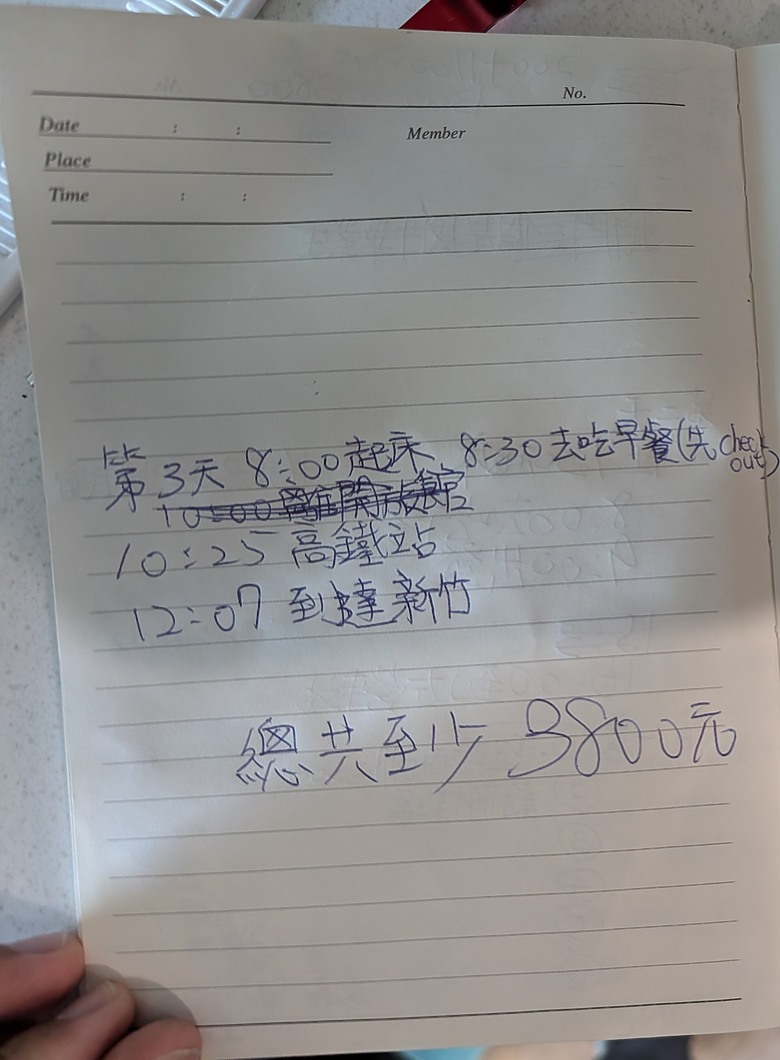 No.
Date : :
Member
Place
Time : :
第3天 8:00起床 8:30去吃早餐(先check out)
10:00離開旅館
10:25 高鐵站
12:07 到達新竹
總共至少3800元